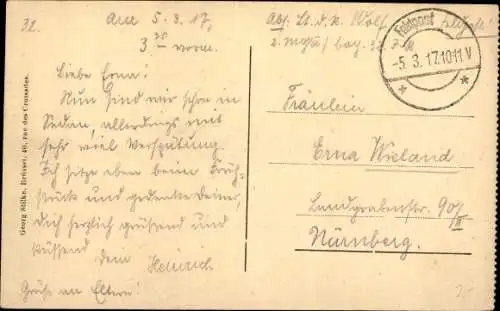 32.
Am 5.3.17,
3 30 vorm.
Liebe Erna!
Nun sind wir schon in
Sedan, allerdings mit
sehr viel Verspätung.
Ich sitze eben beim Früh-
stück und gedenke Deiner,
Dich herzlich grüßend und
küssend
Dein Heinrich
Grüße an Eltern!
Georg Stilke, Brüssel, 40, rue des Croisades.
Abs: Lt. d. R. Wolf,
Feldpost
-5. 3. 17.10-11 V
* *
Fräulein
Erna Wieland
Landgrabenstr. 90/II
Nürnberg.